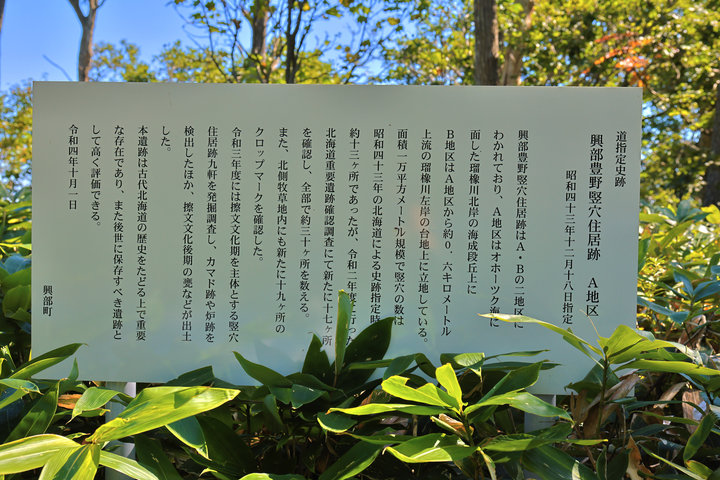 道指定史跡
興部豊野竪穴住居跡　A地区
昭和四十三年十二月十八日指定
興部豊野竪穴住居跡はA・Bの二地区に
わかれており、A地区はオホーツク海に
面した瑠橡川北岸の海成段丘上に
B地区はA地区から約0．六キロメートル
上流の瑠橡川左岸の台地上に立地している。
面積一万平方メートル規模で竪穴の数は
昭和四十三年の北海道による史跡指定時
約十三ヶ所であったが、令和二年度に行った
北海道重要遺跡確認調査にて新たに十七ヶ所
を確認し、全部で約三十ヶ所を数える。
また、北側牧草地内にも新たに十九ヶ所の
クロップマークを確認した。
令和三年度には擦文文化期を主体とする竪穴
住居跡九軒を発掘調査し、カマド跡や炉跡を
検出したほか、擦文文化後期の甕などが出土
した。
本遺跡は古代北海道の歴史をたどる上で重要
な存在であり、また後世に保存すべき遺跡と
して高く評価できる。
令和四年十月一日
興部町